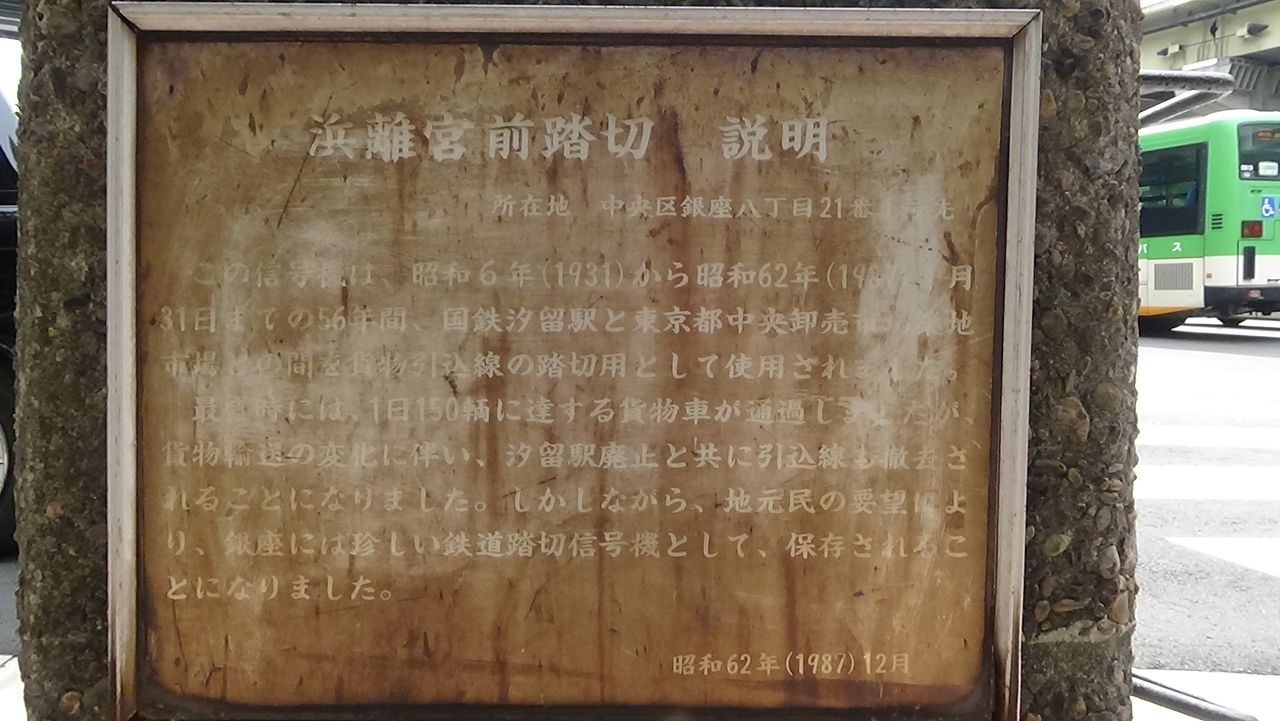 浜離宮前踏切 説明
所在地 中央区銀座八丁目21番 先
この信号機は、昭和6年(1931)から昭和62年(198 月
31日までの56年間、国鉄汐留駅と東京都中央卸売市 地
市場との間を貨物引込線の踏切用として使用されました。
最盛時には、1日150輌に達する貨物車が通過しましたが、
貨物輸送の変化に伴い、汐留駅廃止と共に引込線も撤去さ
れることになりました。しかしながら、地元民の要望によ
り、銀座には珍しい鉄道踏切信号機として、保存されるこ
とになりました。
昭和62年(1987)12月
バス